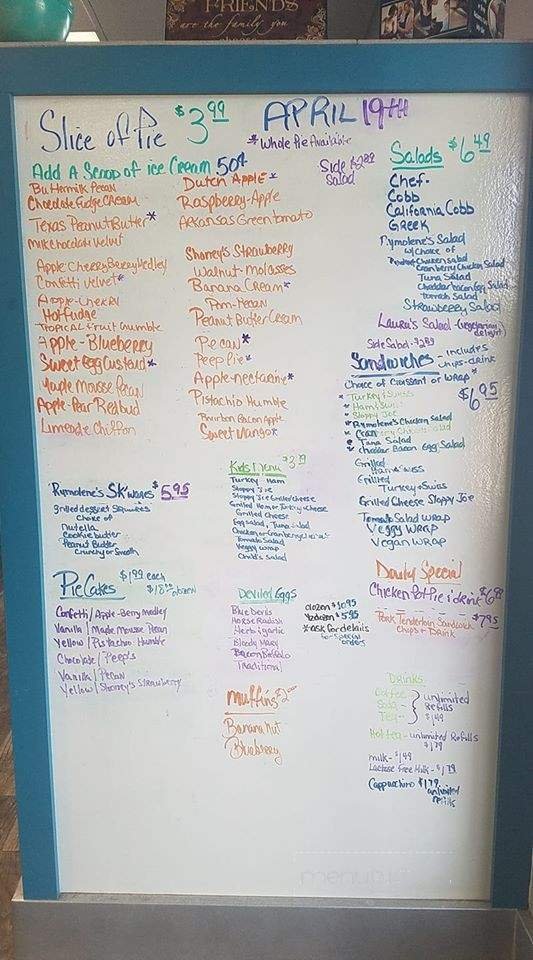 FRIENDS
are the family you
Slice of Pie $3.99
APRIL 19TH
*Whole Pie Available
Add A Scoop of ice Cream 50¢
Buttermilk Pecan
Chocolate Fudge Cream
Texas Peanut Butter *
Milk Chocolate Velvet
Apple Cherry Berry Medley
Confetti Velvet *
Apple-Cherry
Hot Fudge
Tropical Fruit Crumble
Apple-Blueberry
Sweet Egg Custard *
Maple Mousse Pecan
Apple-Pear Redbud
Limeade Chiffon
Dutch Apple *
Raspberry-Apple
Arkansas Green tomato
Shoney's Strawberry
Walnut-Molasses
Banana Cream *
Pecan
Peanut Butter Cream
Pecan *
Peep Pie *
Apple-nectarine *
Pistachio Humble
Bourbon Bacon Apple
Sweet Mango *
Side $2.89
Salad
Salads $6.49
Chef-
Cobb
California Cobb
Greek
Rymolene's Salad
w/choice of
Chicken salad
Cranberry Chicken Salad
Tuna Salad
Cheddar bacon Egg Salad
tomato Salad
Strawberry Salad
Laura's Salad-(vegetarian
delight)
Side Salad-$2.89
Sandwiches - includes
chips-drink
Choice of Croissant or WRAP *
$6.95
* Turkey & Swiss
* Ham & Swiss
* Sloppy Joe
* Rymolene's Chicken Salad
* Cranberry Chicken Salad
* Tuna Salad
* cheddar Bacon Egg Salad
Grilled
Ham & Swiss
Grilled
Turkey & Swiss
Grilled Cheese Sloppy Joe
Tomato Salad WRAP
Veggy WRAP
Vegan WRAP
Rymolene's SK'Wares $5.95
grilled dessert Squares
Choice of
Nutella
Cookie butter
Peanut Butter
Crunchy or Smooth
Kids Menu $3.19
Turkey Ham
Sloppy Joe
Sloppy Joe Grilled Cheese
Grilled Ham or Turkey & Cheese
Grilled Cheese
Egg Salad, Tuna Salad
Chicken or Cranberry
Tomato Salad
Veggy WRAP
Child's Salad
PieCakes $1.99 each
dozen
Confetti/Apple-Berry Medley
Vanilla/Maple Mousse Pecan
Yellow/Pistachio Humble
Chocolate/Peep's
Vanilla/Pecan
Yellow/Shoney's Strawberry
Deviled Eggs
Blue Devils
Horse Radish
Herb & garlic
Bloody Mary
Bacon Buffalo
Traditional
dozen $10.95
½ dozen $5.95
*ask for details
for special
orders
Muffins $2
Banana Nut
Blueberry
Daily Special
Chicken Pot Pie & drink
Pork Tenderloin Sandwich $7.95
Chips & Drink
Drinks
Coffee
Soda-
Tea-
unlimited
Refills
$1.49
Hot tea- unlimited Refills
$1.79
milk-$1.49
Lactose Free Milk-$1.79
Cappuccino $1.79
unlimited
refills